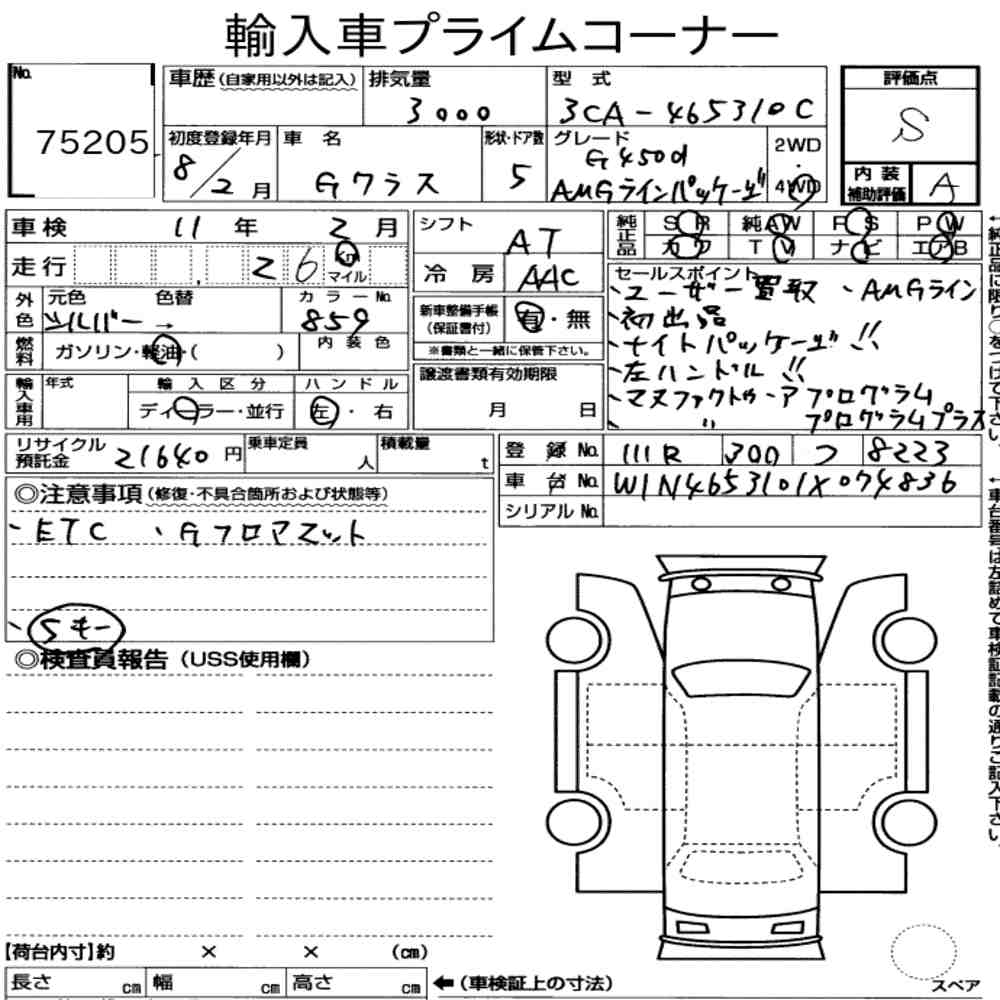 輸入車プライムコーナー
No. 75205
車歴(自家用以外は記入)
排気量 3000
型式 3CA-465310C
評価点 S
初度登録年月 8/2月
車名 Gクラス
形状・ドア数 5
グレード G450d
AMGラインパッケージ
2WD・4WD
内装補助評価 A
車検 11年 2月
シフト AT
純正品 SR 純AW PS PW
カワ TV ナビ エアB
走行 26 Km マイル
冷房 AAC
セールスポイント
、ユーザー買取 、AMGライン
、初出品
、ナイトパッケージ!!
、左ハンドル!!
、マヌファクトゥーアプログラム
、 〃 プログラムプラス
外色 元色 色替 シルバー→
カラーNo. 859
新車整備手帳(保証書付) 有・無
※書類と一緒に保管下さい。
燃料 ガソリン・軽油・( )
内装色
輸入車用 年式
輸入区分 ディーラー・並行
ハンドル 左・右
譲渡書類有効期限
月 日
リサイクル預託金 21640円
乗車定員 人
積載量 t
登録No. 300 つ 8223
車台No. W1N4653101X074836
シリアルNo.
◎注意事項(修復・不具合箇所および状態等)
、ETC 、Gフロアマット
、5キー
◎検査員報告(USS使用欄)
【荷台内寸】約 × × (cm)
長さ cm 幅 cm 高さ cm
←(車検証上の寸法)
スペア
←純正品に限り○をつけて下さい。
←車台番号は左詰めで車検証記載の通りご記入下さい。